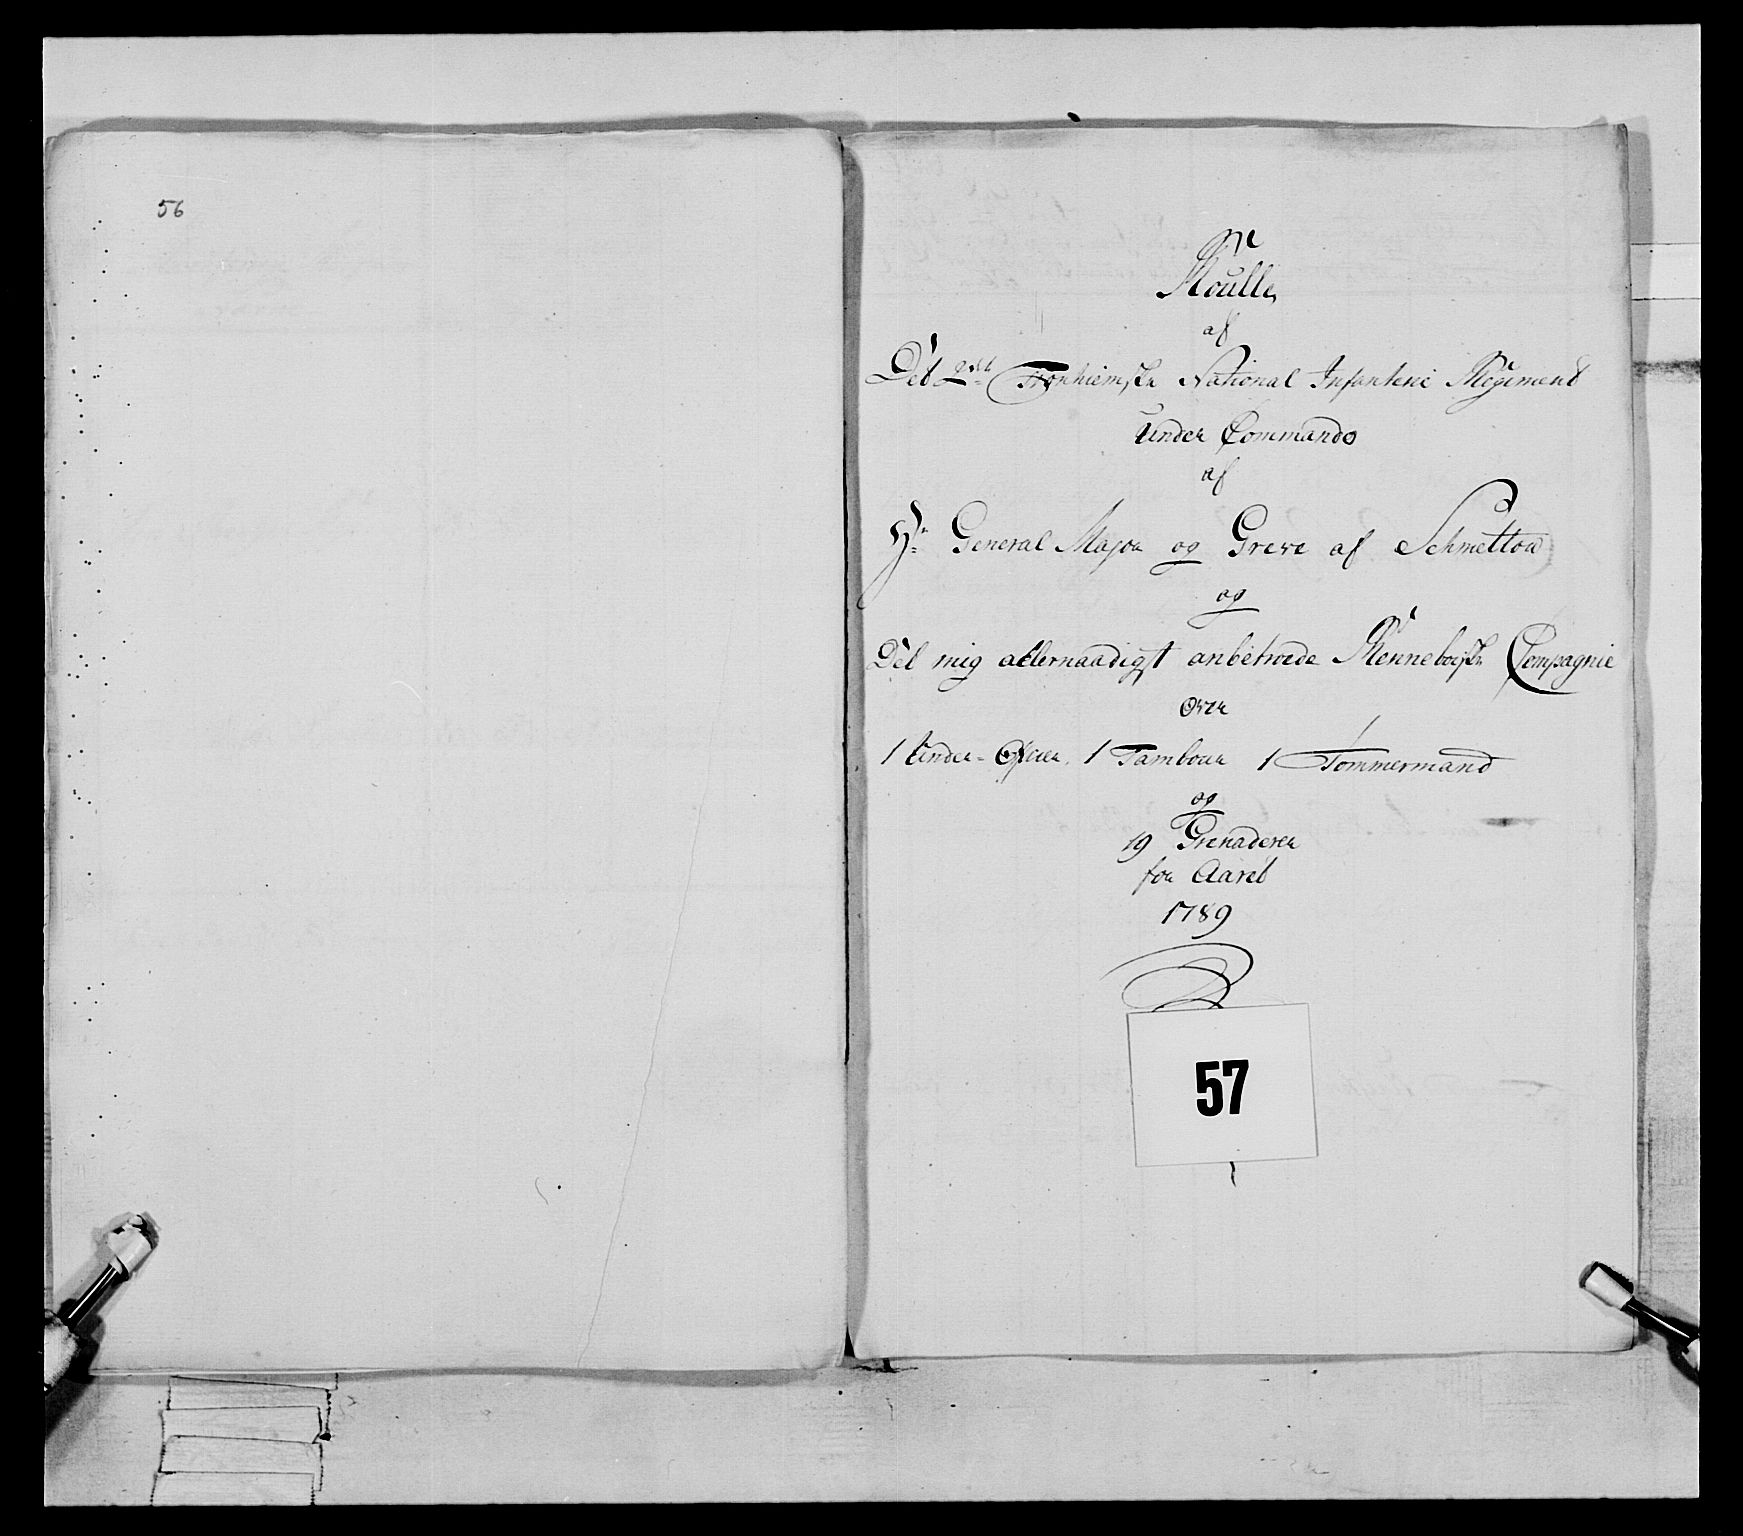 56
Roulle
af
Det 2det Tronhiemske National Infanterie Regiment
Under Commando
af
Hr General Major og Greve af Schmettow
og
Det mig allernaadigst anbetroede Renneboeske Compagnie
Over
1 Under-Officer, 1 Tambour 1 Tømmermand
og
19 Grenaderer
for Aaret
1789
57